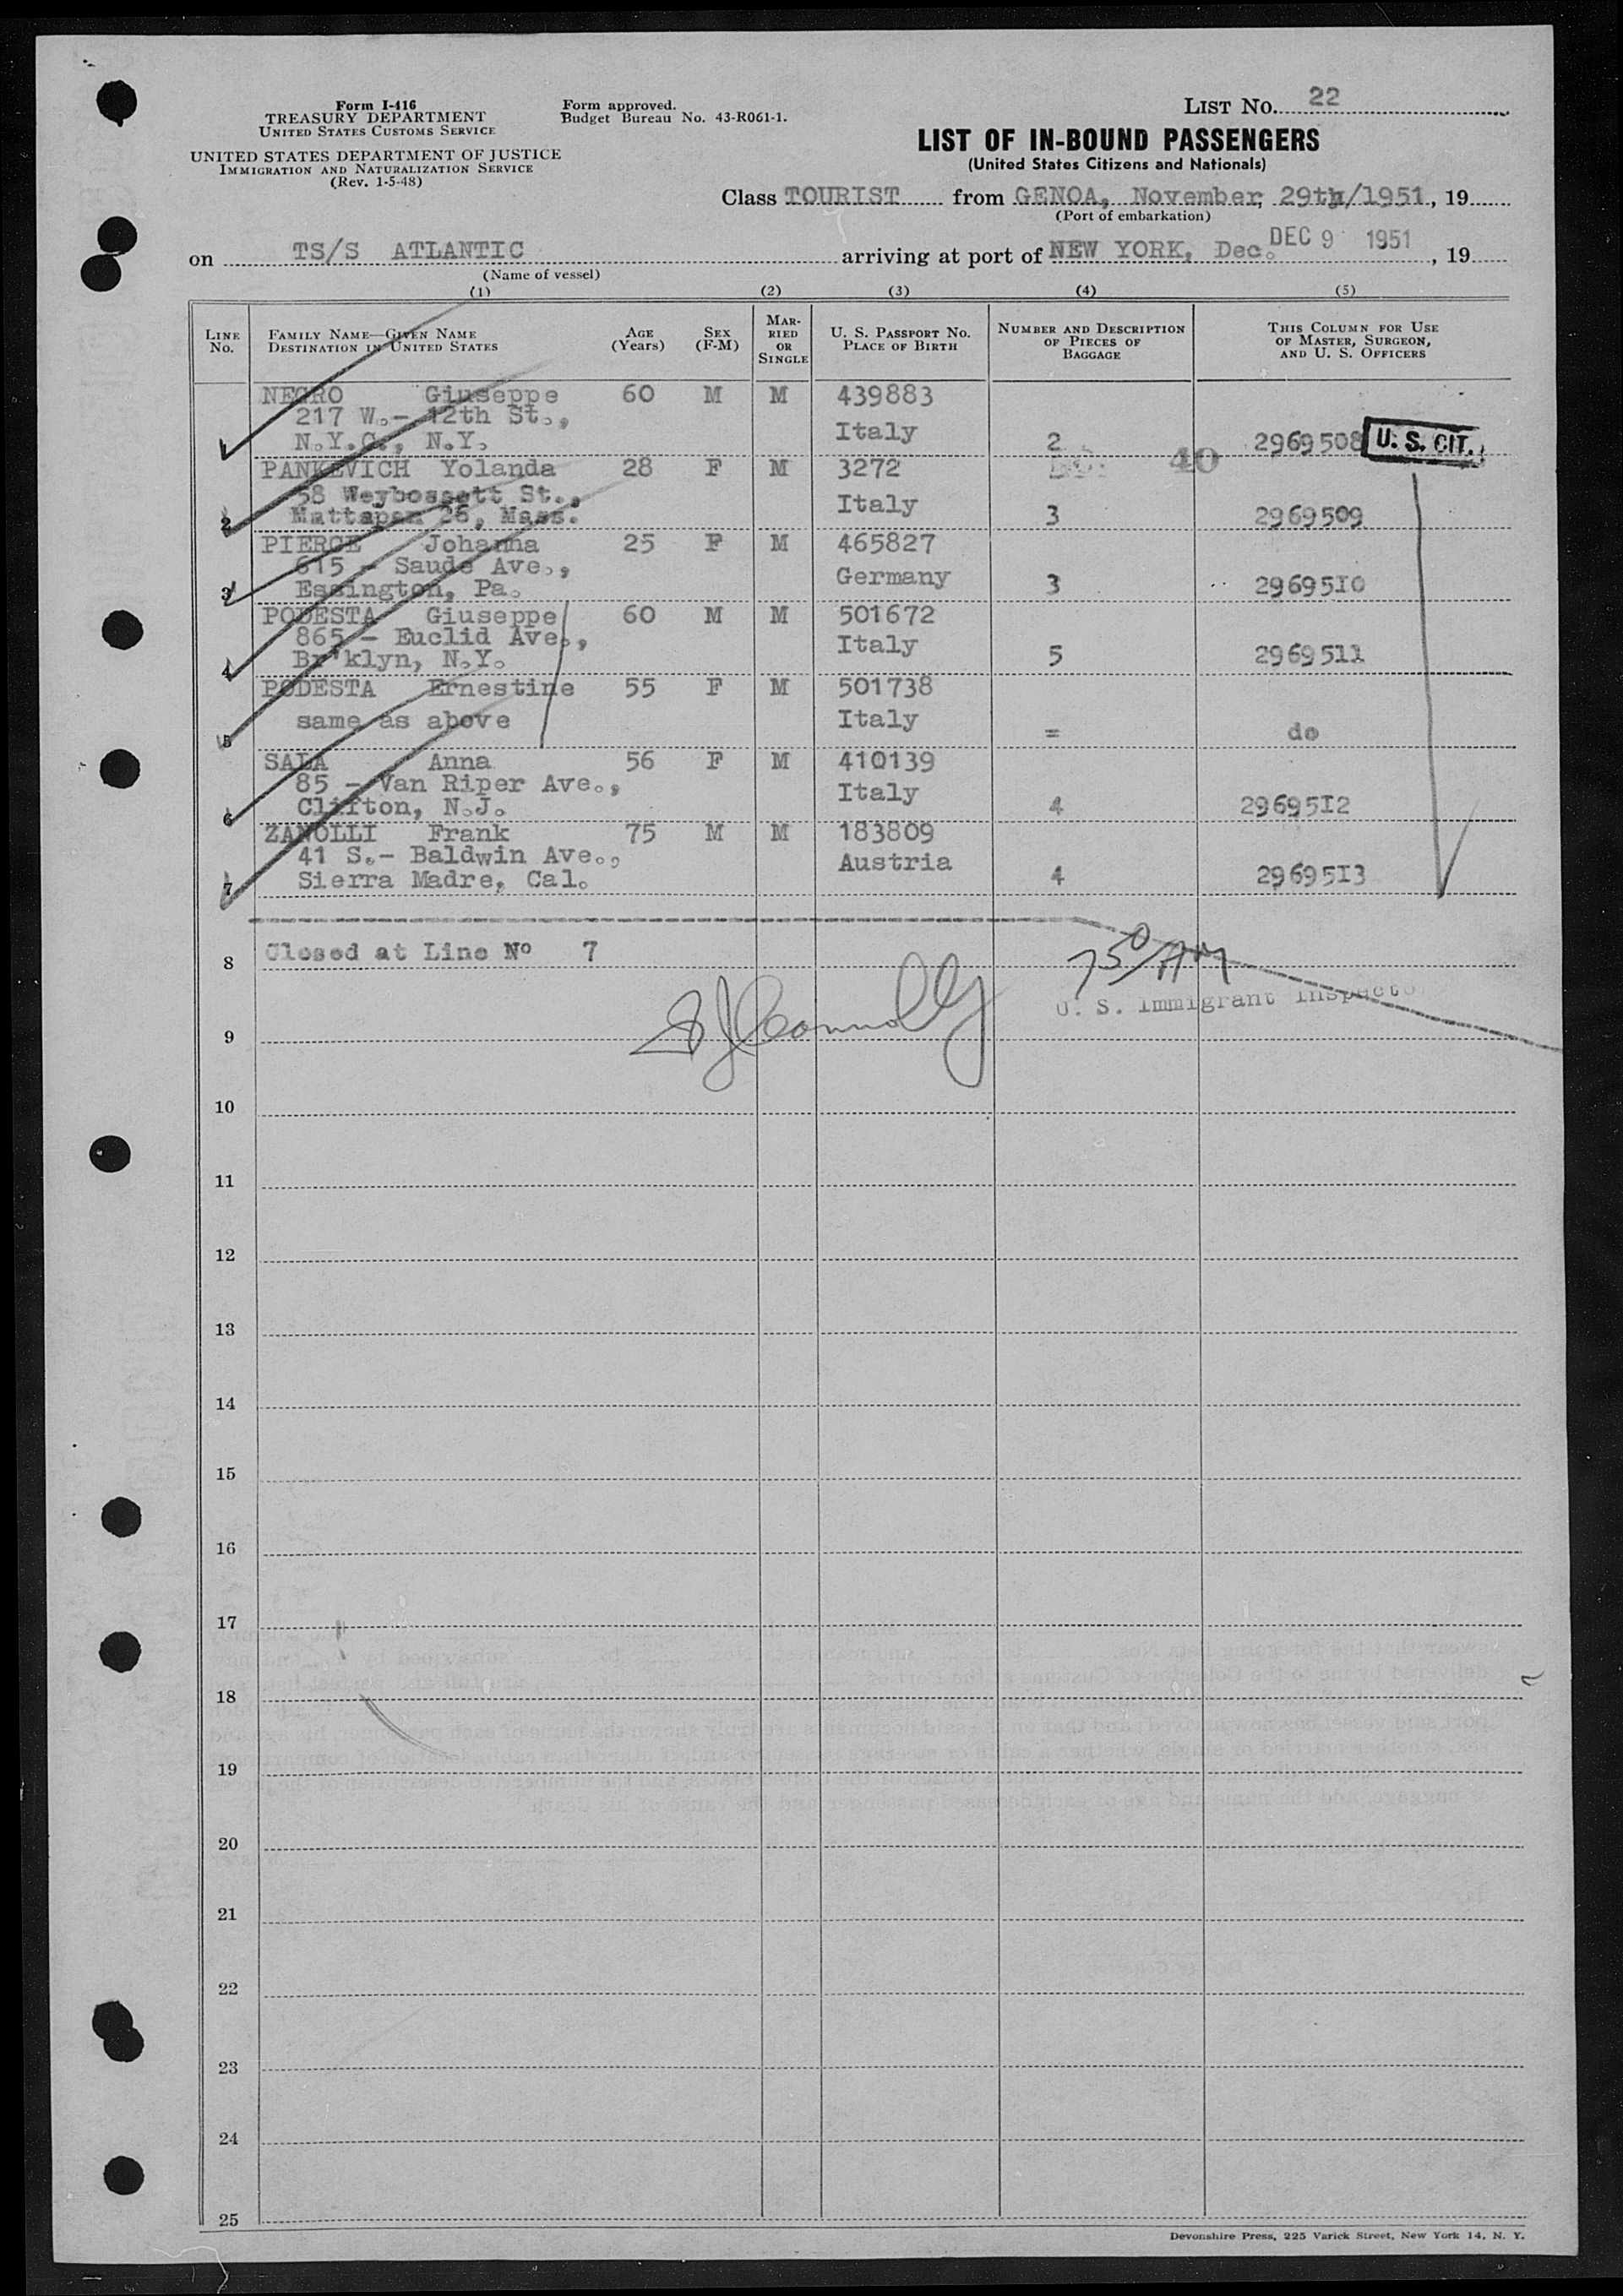 Form I-416
TREASURY DEPARTMENT
UNITED STATES CUSTOMS SERVICE
UNITED STATES DEPARTMENT OF JUSTICE
IMMIGRATION AND NATURALIZATION SERVICE
(Rev. 1-5-48)
Form approved.
Budget Bureau No. 43-R061-1.
LIST NO. 22
LIST OF IN-BOUND PASSENGERS
(United States Citizens and Nationals)
Class TOURIST from GENOA, November, 29th/1951, 19
(Port of embarkation)
on TS/S ATLANTIC arriving at port of NEW YORK, Dec. DEC 9 1951, 19
(Name of vessel)
(1) (2) (3) (4) (5)
LINE NO. FAMILY NAME—GIVEN NAME DESTINATION IN UNITED STATES AGE (Years) SEX (F-M) MARRIED OR SINGLE U. S. PASSPORT NO. PLACE OF BIRTH NUMBER AND DESCRIPTION OF PIECES OF BAGGAGE THIS COLUMN FOR USE OF MASTER, SURGEON, AND U. S. OFFICERS
NEGRO Giuseppe 60 M M 439883
217 W.- 12th St.,
Italy
N.Y.C., N.Y. 2 2969508 U. S. CIT.
PANKEVICH Yolanda 28 F M 3272 40
58 Weybossett St.,
Italy
2 Mattapan 26, Mass. 3 2969509
PIERCE Johanna 25 F M 465827
615 - Saude Ave.,
Germany
3 Essington, Pa. 3 2969510
PODESTA Giuseppe 60 M M 501672
865 - Euclid Ave.,
Italy
4 Br'klyn, N.Y. 5 2969511
PODESTA Ernestine 55 F M 501738
same as above Italy
5 = do
SALA Anna 56 F M 410139
85 - Van Riper Ave.,
Italy
6 Clifton, N.J. 4 2969512
ZANOLLI Frank 75 M M 183809
41 S.- Baldwin Ave.,
Austria
7 Sierra Madre, Cal. 4 2969513
8 Closed at Line No 7
750 AM
Connolly
U. S. Immigrant Inspector
9
10
11
12
13
14
15
16
17
18
19
20
21
22
23
24
25
Devonshire Press, 225 Varick Street, New York 14, N. Y.